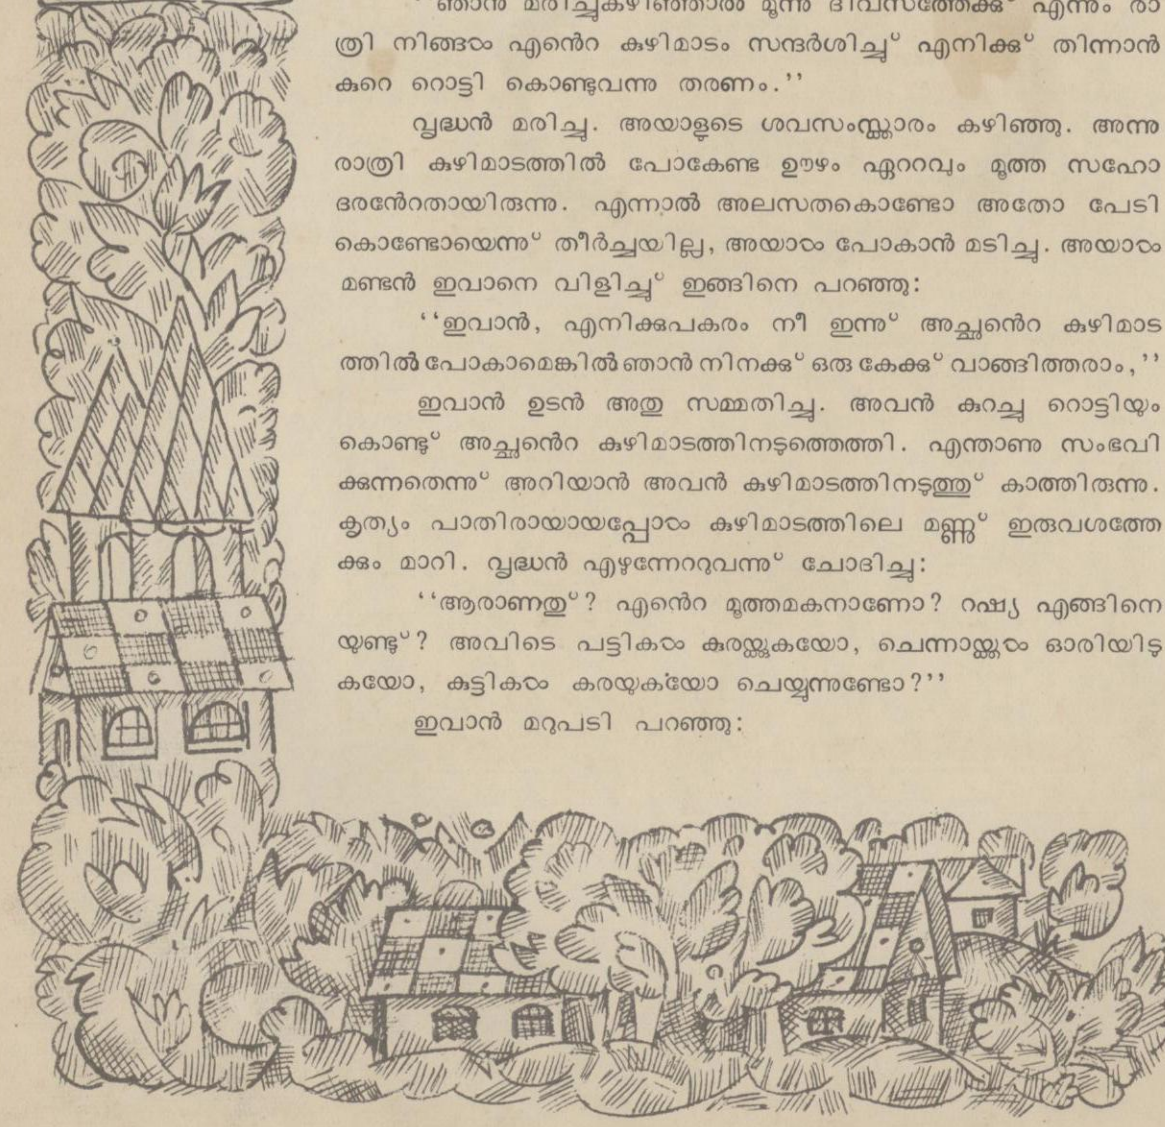 ‘‘ഞാൻ മരിച്ചുകഴിഞ്ഞാൽ മൂന്നു ദിവസത്തേക്കു് എന്നും രാ
ത്രി നിങ്ങൾ എൻെറ കുഴിമാടം സന്ദർശിച്ചു് എനിക്കു് തിന്നാൻ
കുറെ റൊട്ടി കൊണ്ടുവന്നു തരണം.’’
വൃദ്ധൻ മരിച്ചു. അയാളുടെ ശവസംസ്ക്കാരം കഴിഞ്ഞു. അന്നു
രാത്രി കുഴിമാടത്തിൽ പോകേണ്ട ഊഴം ഏററവും മൂത്ത സഹോ
ദരൻേറതായിരുന്നു. എന്നാൽ അലസതകൊണ്ടോ അതോ പേടി
കൊണ്ടോയെന്നു് തീർച്ചയില്ല, അയാൾ പോകാൻ മടിച്ചു. അയാൾ
മണ്ടൻ ഇവാനെ വിളിച്ചു് ഇങ്ങിനെ പറഞ്ഞു:
‘‘ഇവാൻ, എനിക്കുപകരം നീ ഇന്നു് അച്ഛൻെറ കുഴിമാട
ത്തിൽ പോകാമെങ്കിൽ ഞാൻ നിനക്കു് ഒരു കേക്കു് വാങ്ങിത്തരാം,’’
ഇവാൻ ഉടൻ അതു സമ്മതിച്ചു. അവൻ കുറച്ചു റൊട്ടിയും
കൊണ്ടു് അച്ഛൻെറ കുഴിമാടത്തിനടുത്തെത്തി. എന്താണു സംഭവി
ക്കുന്നതെന്നു് അറിയാൻ അവൻ കുഴിമാടത്തിനടുത്തു് കാത്തിരുന്നു.
കൃത്യം പാതിരായായപ്പോൾ കുഴിമാടത്തിലെ മണ്ണു് ഇരുവശത്തേ
ക്കും മാറി. വൃദ്ധൻ എഴുന്നേററുവന്നു് ചോദിച്ചു:
‘‘ആരാണതു്? എൻെറ മൂത്തമകനാണോ? റഷ്യ എങ്ങിനെ
യുണ്ടു്? അവിടെ പട്ടികൾ കുരയ്ക്കുകയോ, ചെന്നായ്ക്കൾ ഓരിയിടു
കയോ, കുട്ടികൾ കരയുകയോ ചെയ്യുന്നുണ്ടോ?’’
ഇവാൻ മറുപടി പറഞ്ഞു: